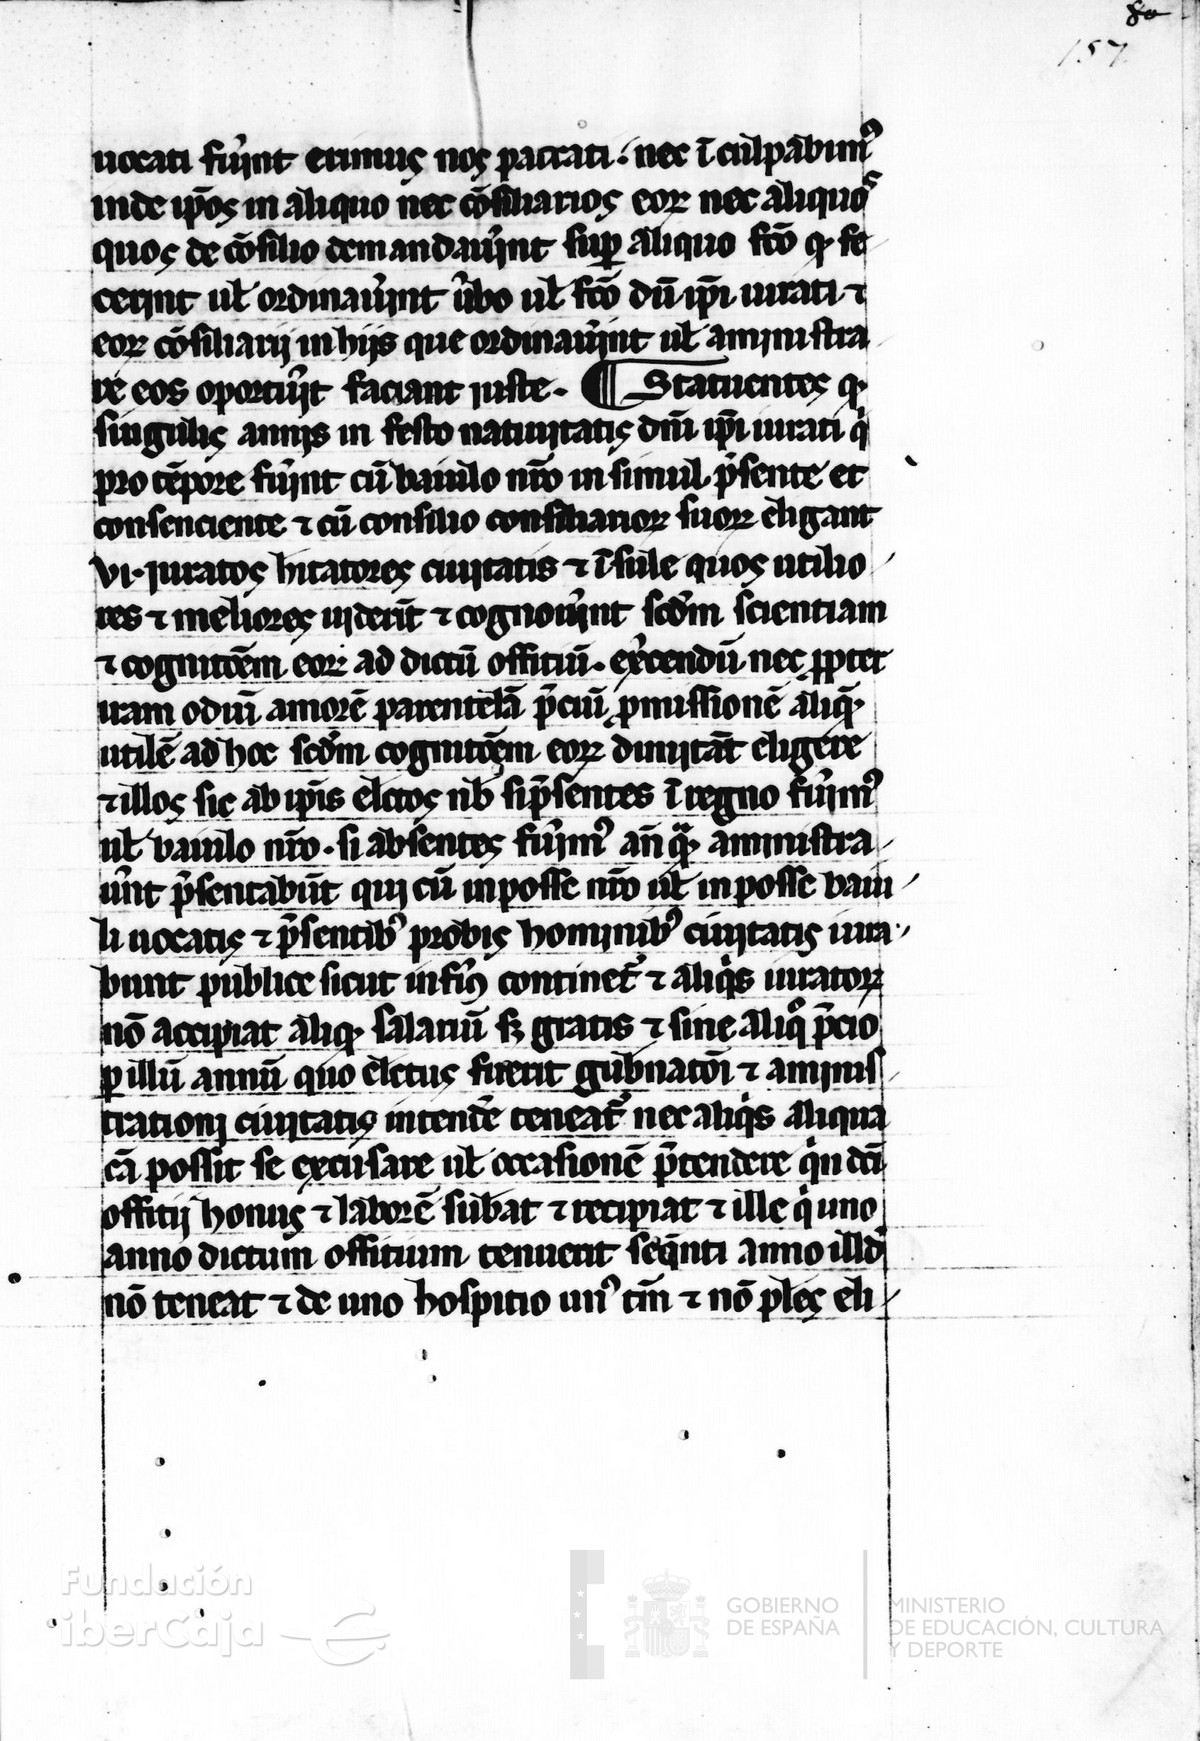 80
157
uocati fu͛int erimus nos paccati · nec ī culpabim᷒
inde ip̄os in aliquo nec cṓsiliarios eoꝝ nec aliquos
quos de cōsilio demandau͛int suꝑ aliquo fc̄o qͥ fe
cerint ul̄ ordinau͛int u͛bo ul̄ fc̄o dū ip̄i iurati ⁊
eoꝝ cōsiliarij in hijs que ordinau͛int ul̄ aministra
re eos oportu͛it faciant iuste · ¶ Statuentes qꝫ
singulis annis in festo natiuitatis dn̄i ip̄i iurati qͥ
pro tēpore fu͛int cū baiulo nr̄o in simul p̄sente et
consenciente ⁊ cū consilio consiliarioꝝ suoꝝ eligant
VI · iuratos h̄itatores ciuitatis ⁊ īsule quos utilio
res ⁊ meliores uiderīt ⁊ cognou͛int scd̄m scientiam
⁊ cognitōem eoꝝ ad dictū offitiū · ex͛cendū nec ꝓpter
iram odiū amorē parentelā p̄ciū ꝓmissionē aliqꝫ
utilē ad hoc scd̄m cognitōem eoꝝ dimitāt eligere
⁊ illos sic ab ip̄is elc̄tos nb̄ si p̄sentes ī regno fu͛im᷒
ul̄ baiulo nr̄o · si absentes fu͛im᷒ an̄ qͣꝫ aministra
u͛int p̄sentabūt qui cū in posse nr̄o ul̄ in posse baiu
li uocatis ⁊ p̄sentib᷒ probis hominib᷒ ciuitatis iura
bunt publice sicut inferi᷒ continet᷑ ⁊ aliqͥs iuratoꝝ
nō accipiat aliqꝫ salariū sꝫ gratis ⁊ sine aliqͦ p̄cio
ꝑ illū annū quo elc̄tus fuerit gub̄natōi ⁊ aminis
trationi ciuitatis intend͛e teneat᷑ nec aliqͥs aliqua
cā possit se excusare ul̄ occasionē p̄tendere qͥn dc̄i
offitij honus ⁊ laborē subat ⁊ recipiat ⁊ ille qͥ uno
anno dictum offitium tenuerit seqͣnti anno illd̄
nō teneat ⁊ de uno hospitio un᷒ tm̄ ⁊ nō pl̄es eli
Fundación
iberCaja
GOBIERNO
DE ESPAÑA
MINISTERIO
DE EDUCACIÓN, CULTURA
Y DEPORTE